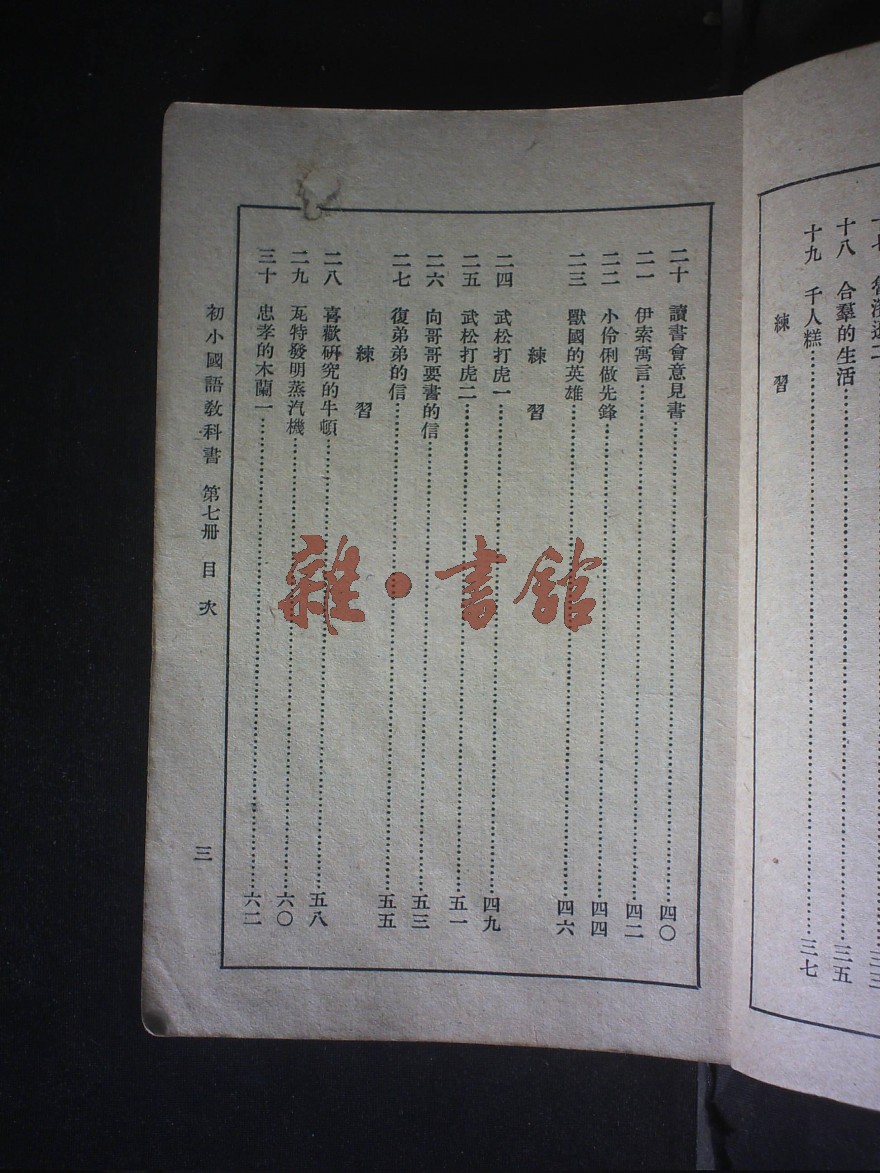 十八　合羣的生活……三五
十九　千人糕……三七
練習
二十　讀書會意見書……四〇
二一　伊索寓言……四二
二二　小伶俐做先鋒……四四
二三　獸國的英雄……四六
練習
二四　武松打虎一……四九
二五　武松打虎二……五一
二六　向哥哥要書的信……五三
二七　復弟弟的信……五五
練習
二八　喜歡研究的牛頓……五八
二九　瓦特發明蒸汽機……六〇
三十　忠孝的木蘭一……六二
初小國語敎科書　第七册　目次
三
雜·書館